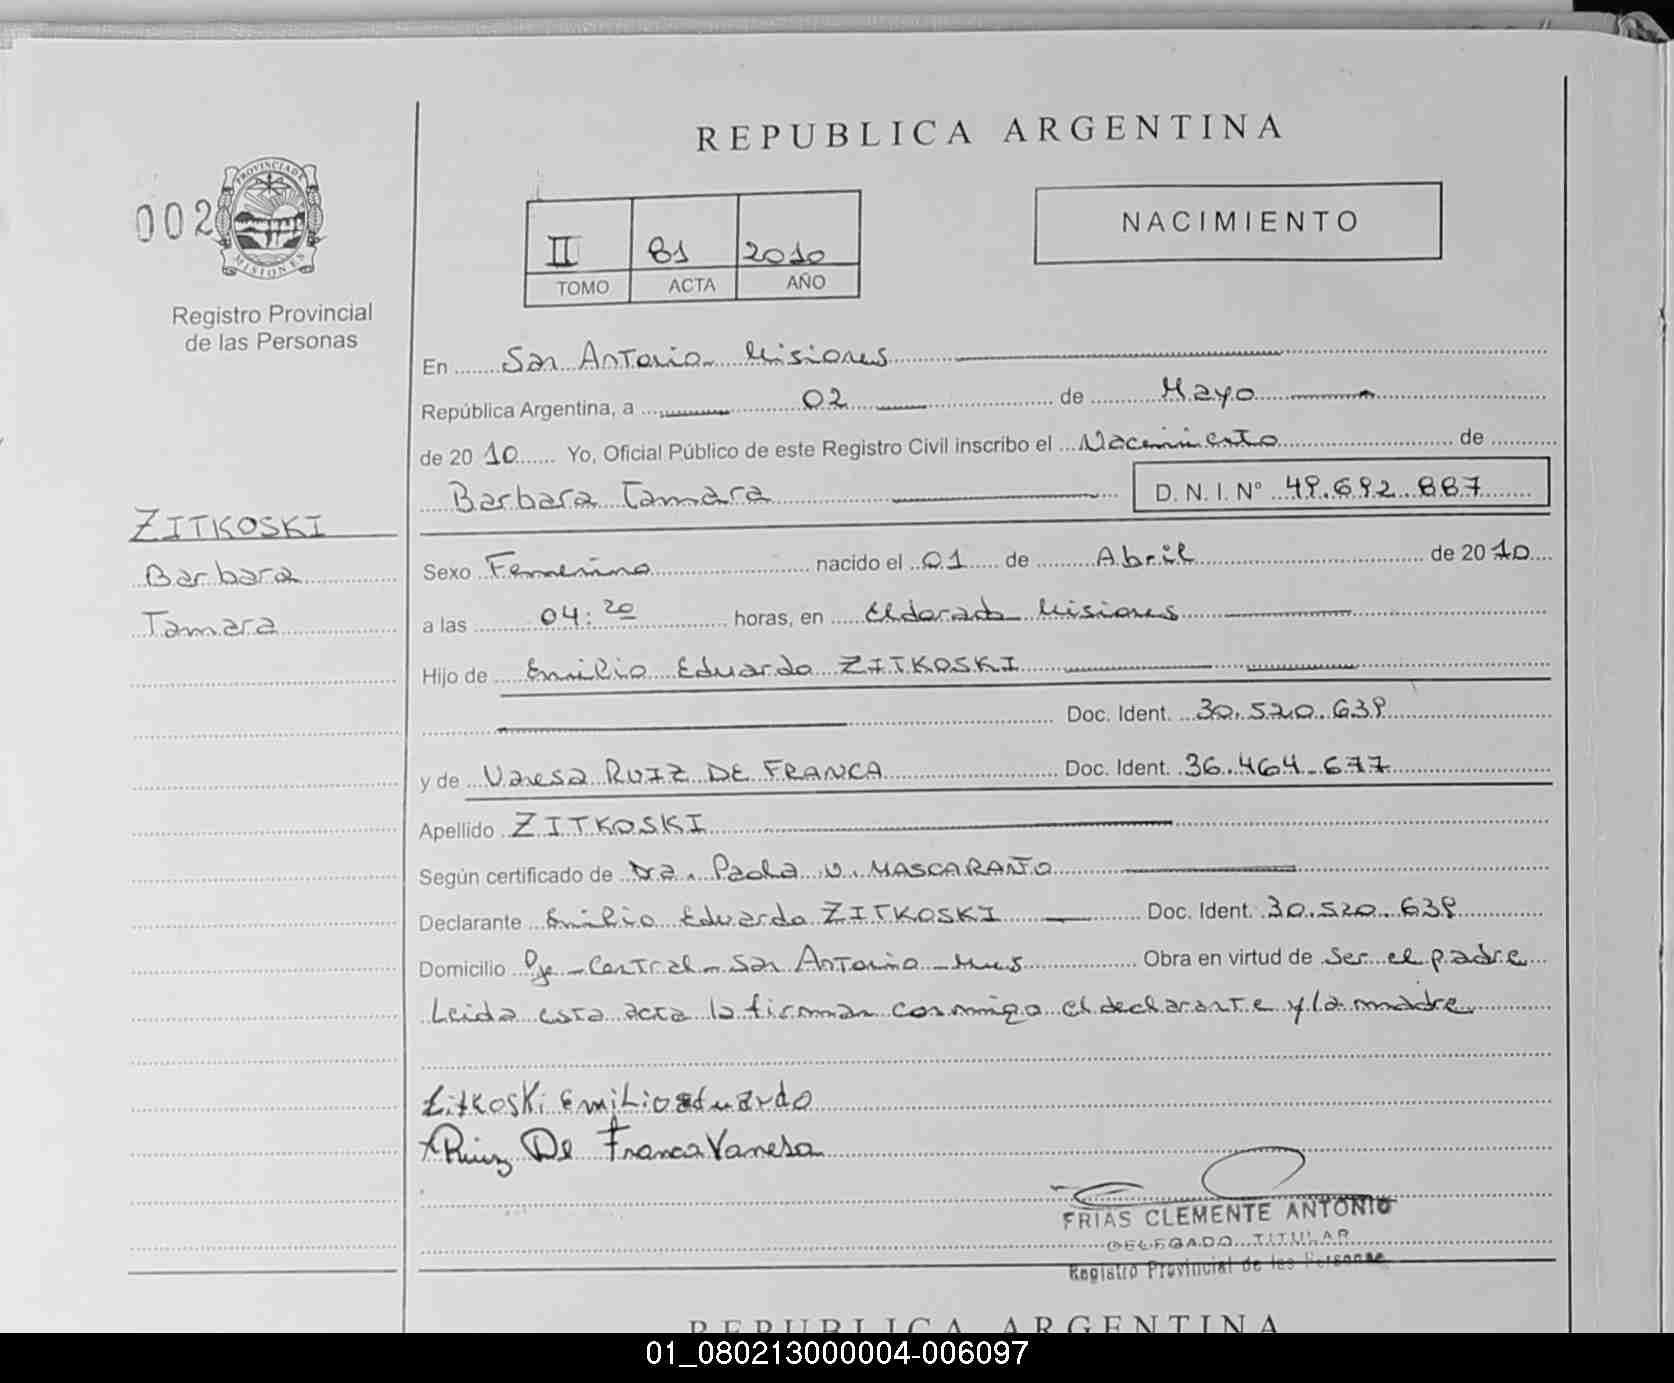 REPUBLICA ARGENTINA
002
PROVINCIA DE
MISIONES
Registro Provincial
de las Personas
II 81 2010
TOMO ACTA AÑO
NACIMIENTO
En San Antonio Misiones
República Argentina, a 02 de Mayo
de 2010 Yo, Oficial Público de este Registro Civil inscribo el Nacimiento de
Barbara Tamara D. N. I. N° 49.692.887
ZITKOSKI
Barbara
Tamara
Sexo Femenino nacido el 01 de Abril de 2010
a las 04:20 horas, en Eldorado Misiones
Hijo de Emilio Eduardo ZITKOSKI
Doc. Ident. 30.520.639
y de Vanesa RUIZ DE FRANCA Doc. Ident. 36.464.677
Apellido ZITKOSKI
Según certificado de Dra. Paola V. MASCARAÑO
Declarante Emilio Eduardo ZITKOSKI Doc. Ident. 30.520.639
Domicilio Pje - Central - San Antonio - Mnes Obra en virtud de Ser el padre
Leida esta acta la firman conmigo el declarante y la madre
Zitkoski Emilio eduardo
Ruiz De Franca Vanesa
FRIAS CLEMENTE ANTONIO
DELEGADO TITULAR
Registro Provincial de las Personas
REPUBLICA ARGENTINA
01_080213000004-006097